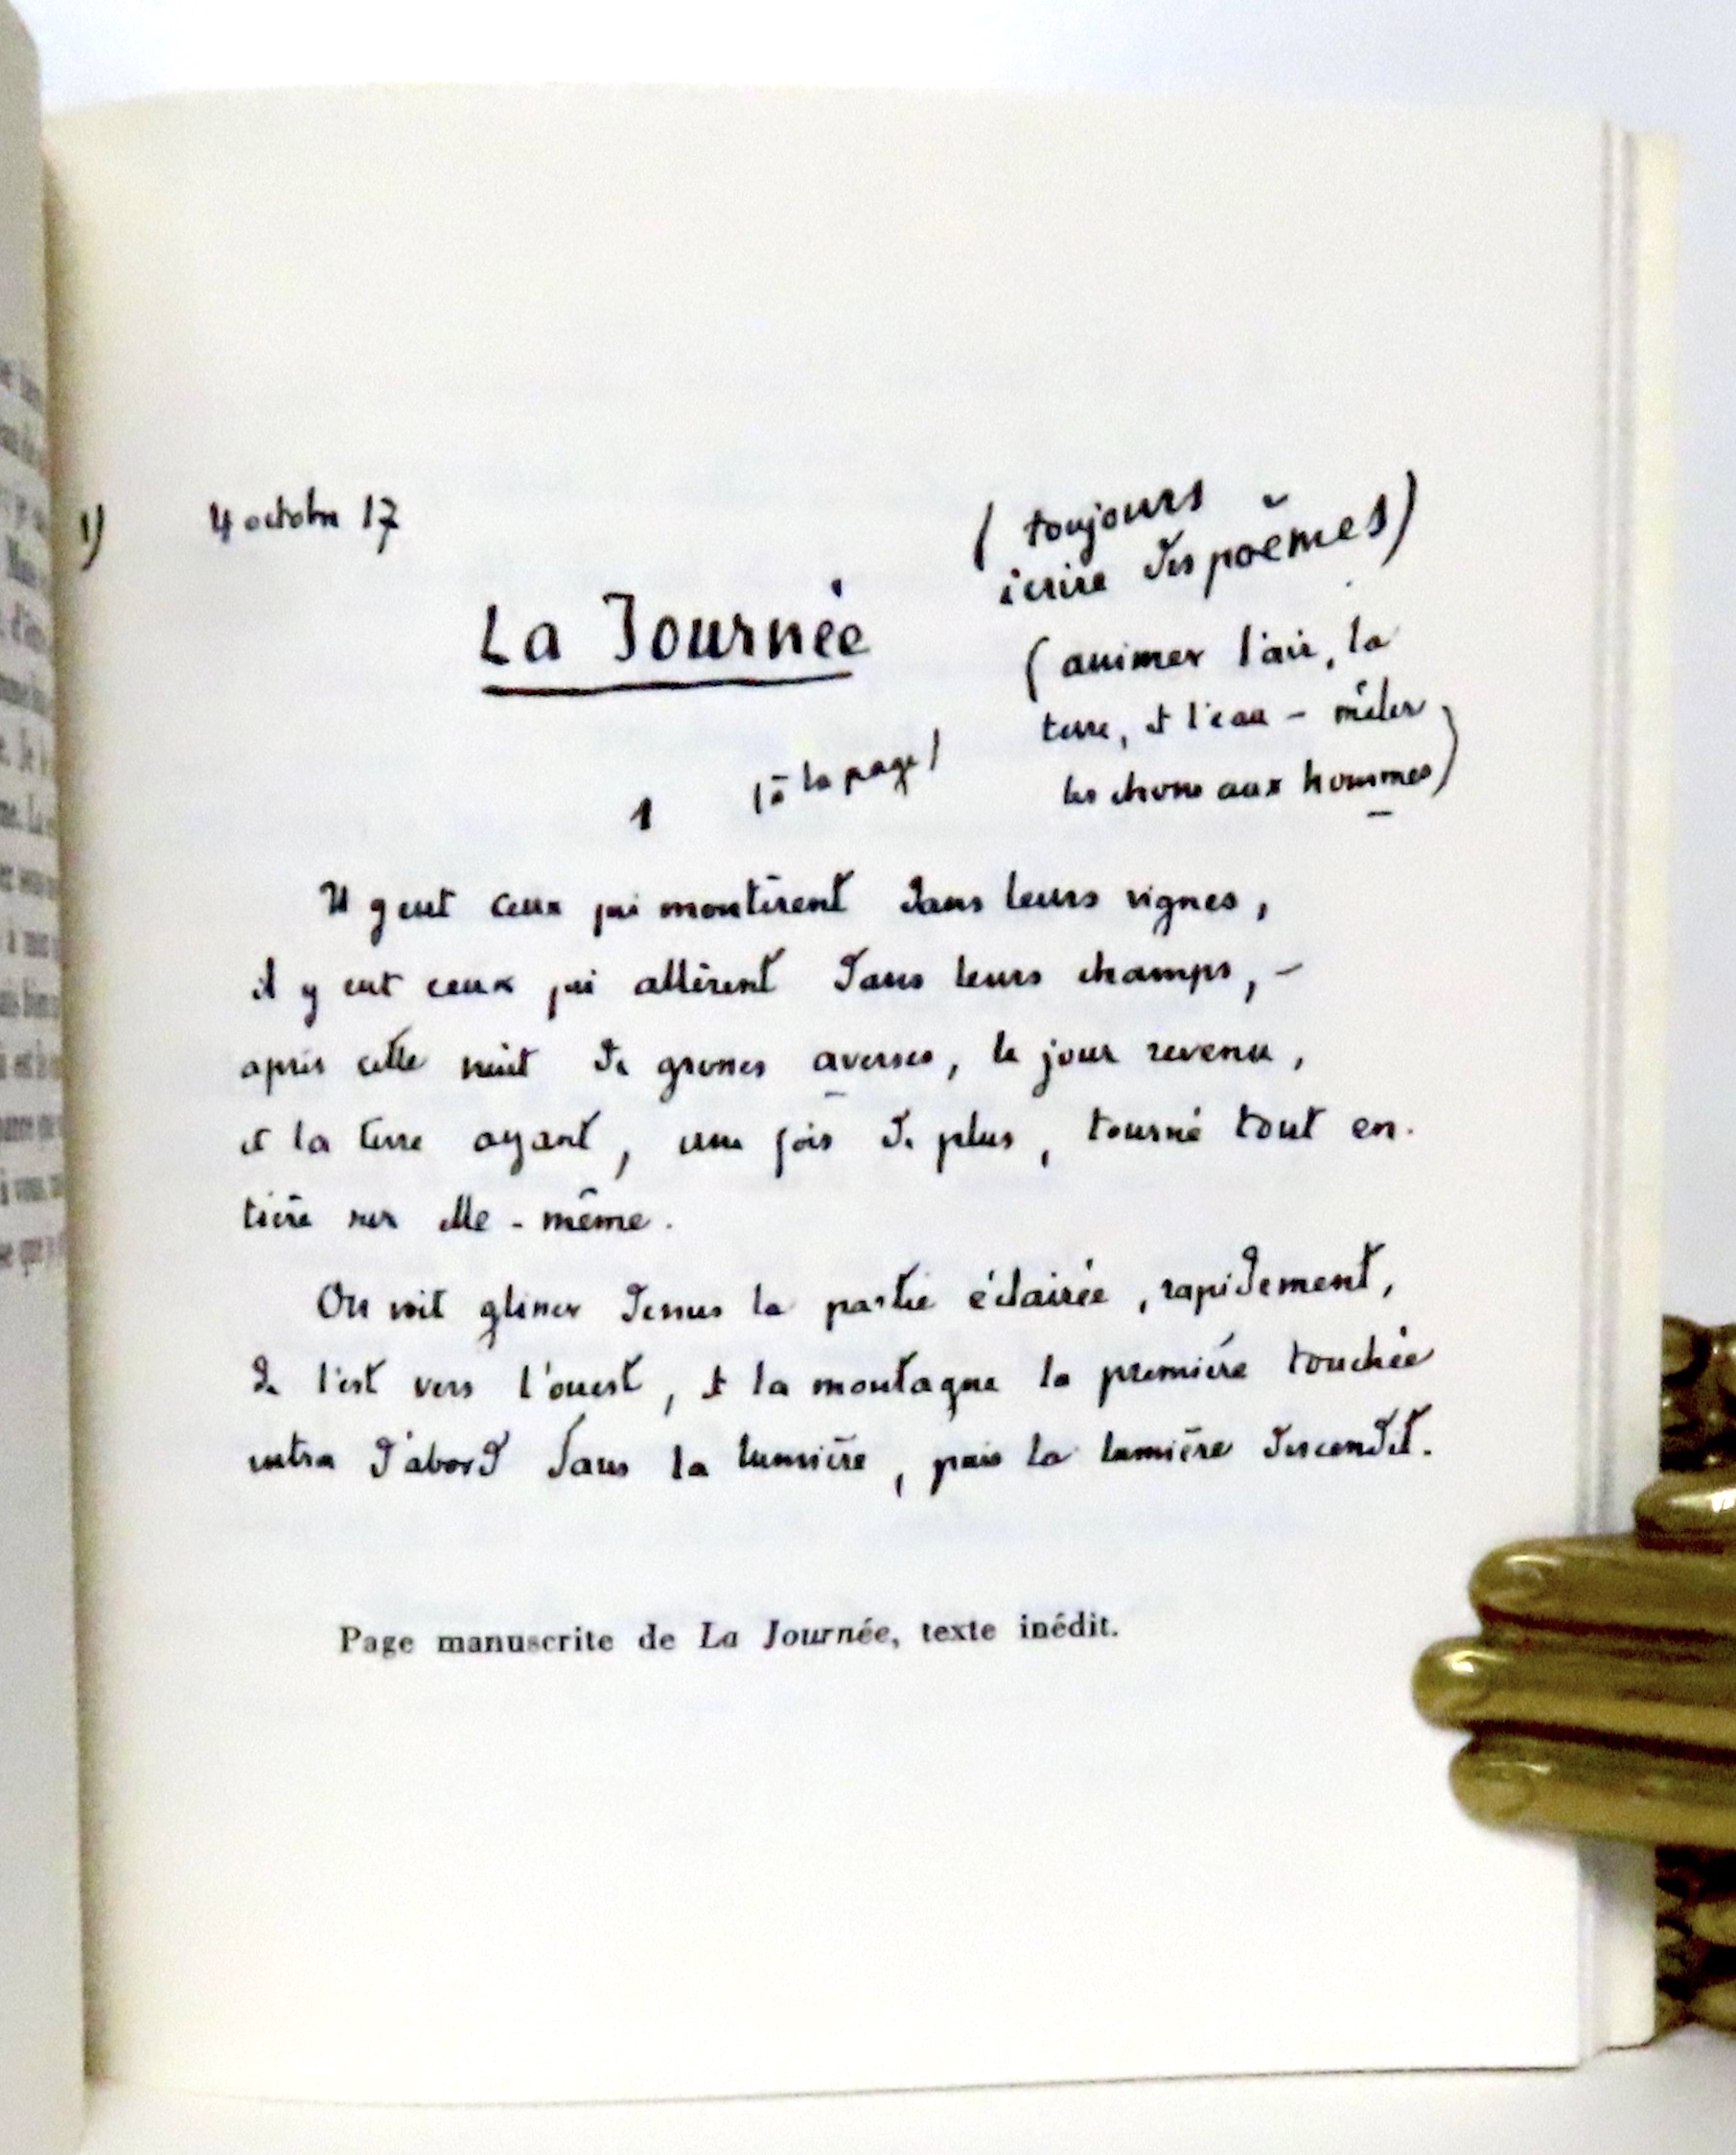 1)
4 octobre 17
(toujours
écrire des poèmes)
La Journée
(animer l'air, la
terre, et l'eau – mêler
les choses aux hommes)
1
(à la page)
Il y eut ceux qui montèrent dans leurs vignes,
il y eut ceux qui allèrent dans leurs champs, –
après cette nuit de grosses averses, le jour revenu,
et la terre ayant, une fois de plus, tourné tout en-
tière sur elle-même.
On vit glisser dessus la partie éclairée, rapidement,
de l'est vers l'ouest, et la montagne la première touchée
entra d'abord dans la lumière, puis la lumière descendit.
Page manuscrite de La Journée, texte inédit.